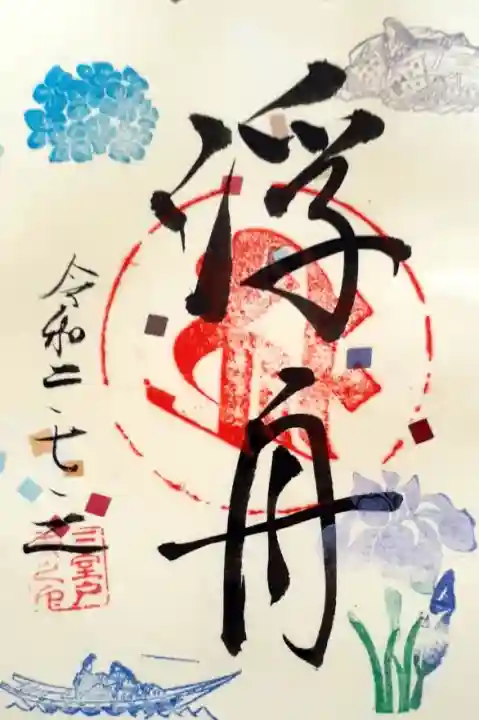 浮舟
令和二、七、
三室戸
寺之印